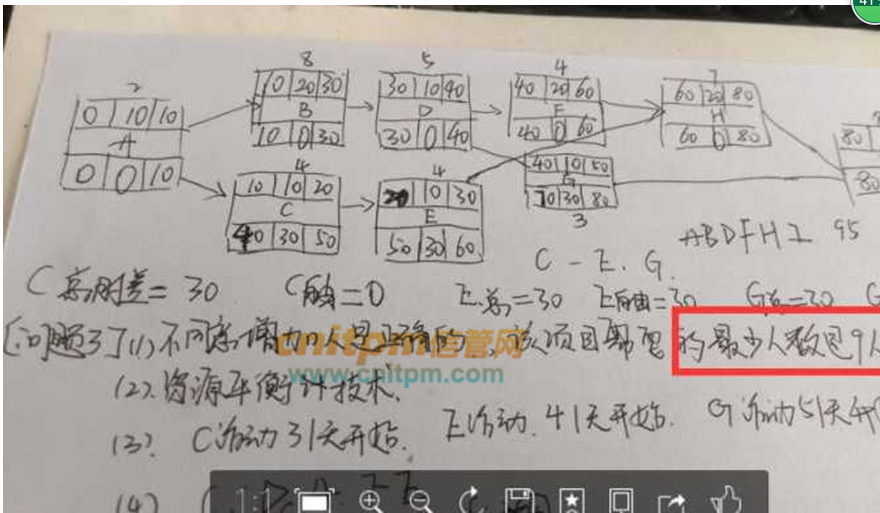 41
2 8 5 4 7
0 10 10
A
0 0 10
10 20 30
B
10 0 30
30 10 40
D
30 0 40
40 20 60
F
40 0 60
60 20 80
H
60 0 80
80
80
4
10 10 20
C
40 30 50
4
20 10 30
E
50 30 60
40 10 50
G
70 30 80
3
ABDFHI 95
C - E. G.
C总时差=30 C自由=0 E总=30 E自由=30 G总=30 G
[问题3](1)不需增加人是正确的，该项目需要的最少人数是9人
cnitpm信管网
www.cnitpm.com
(2). 资源平衡计技术.
(3). C活动31天开始. E活动.41天开始. G活动51天开
(4)
1:1